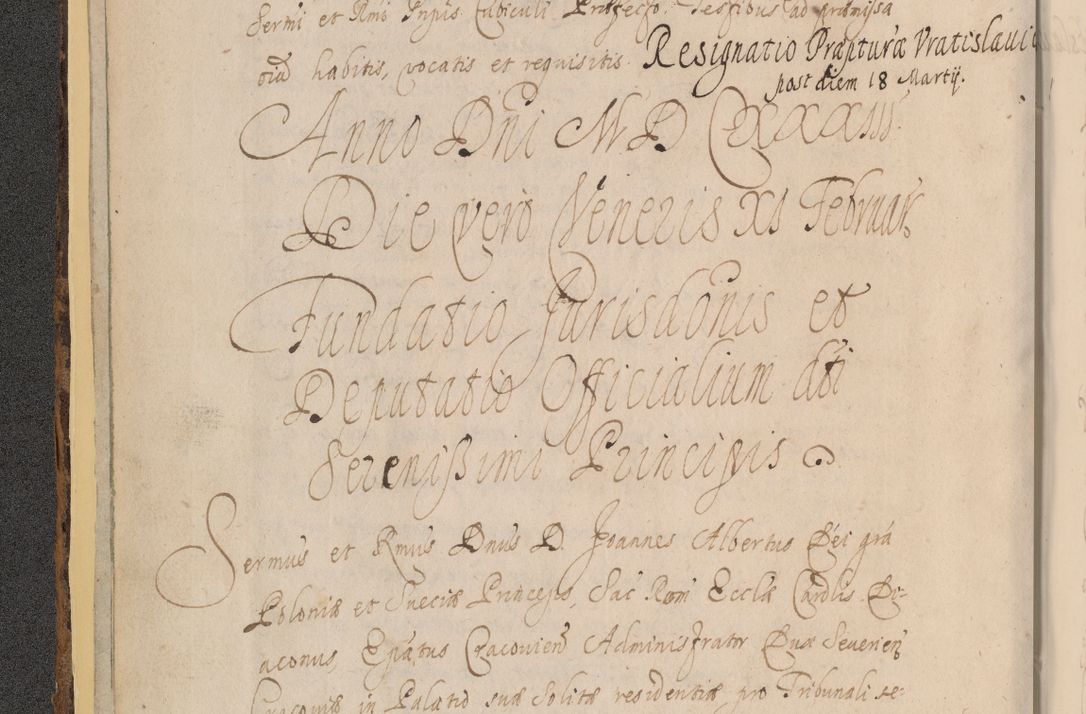 Sermi et Rmi Inpus Cubiculi Prefecto. Testibus ad premissa
oiã habitis, vocatis et requisitis.
Resignatio Præpturæ Vratislavi
post diem 18 Martij.
Anno Dñi M D CXXXIII.
Die verò Veneris XI Februar
Fundatio Jurisdõnis et
Deputatio Officialium dti
Serenißimi Principis
Sermus et Rmus Dnus D. Joannes Albertus Dei grá
Poloniæ et Sueciæ Princeps, Sac Rom Ecclæ Cardlis Di-
aconus, Epátus Cracovien Administrator Dux Severien
Cracoviæ in Palatio suæ solitæ residentiæ pro Tribunali se-